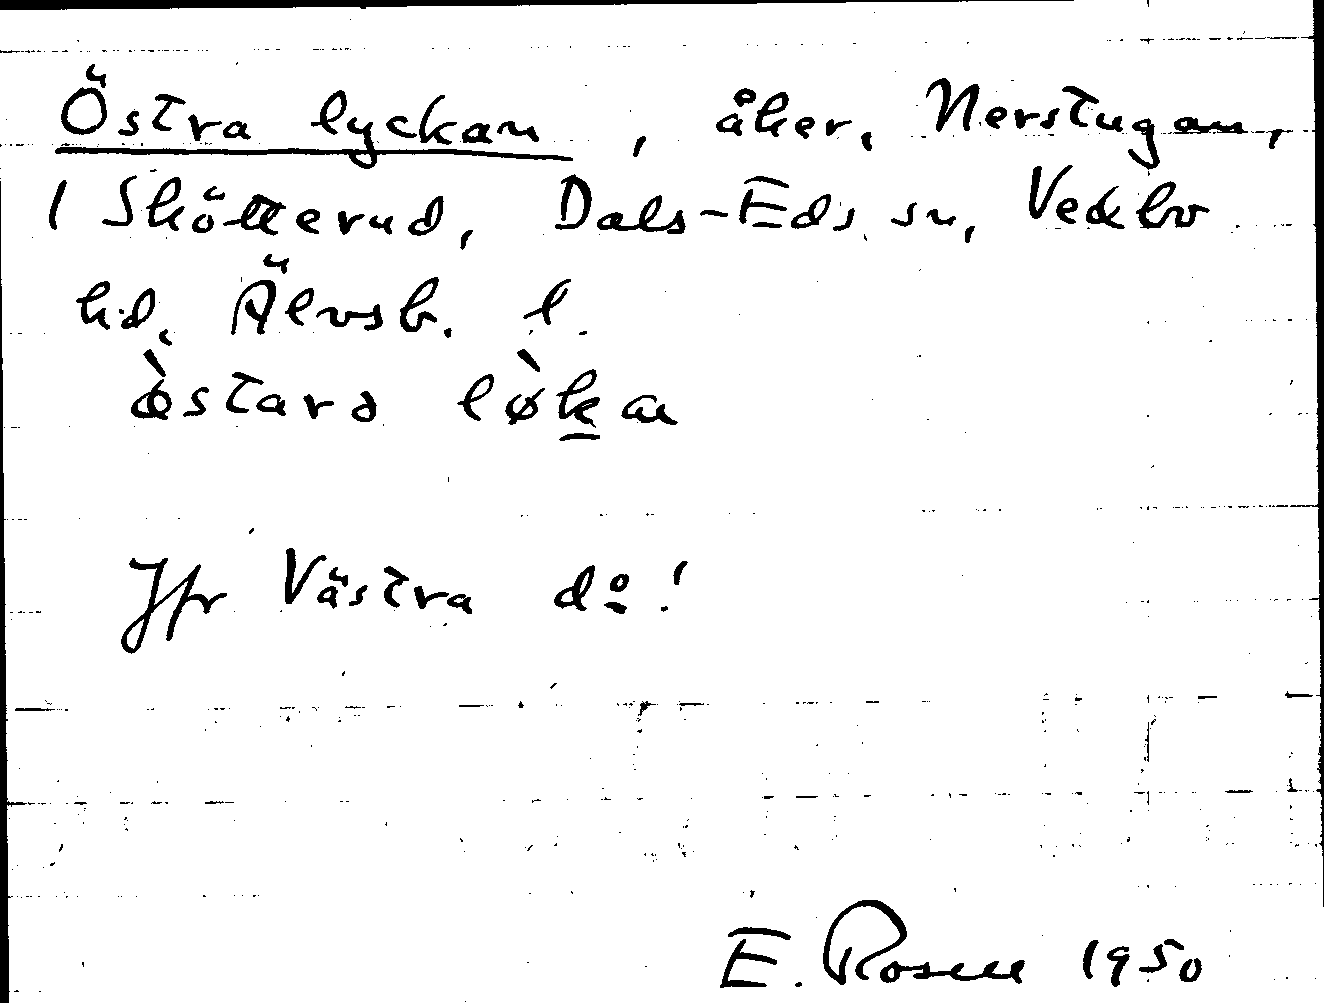 Östra lyckan, åker, Nerstugan,
1 Skötterud, Dals-Eds sn, Vedbo
hd. Älvsb. l.
östara løkan
Jfr Västra do!
E. Rosell 1950